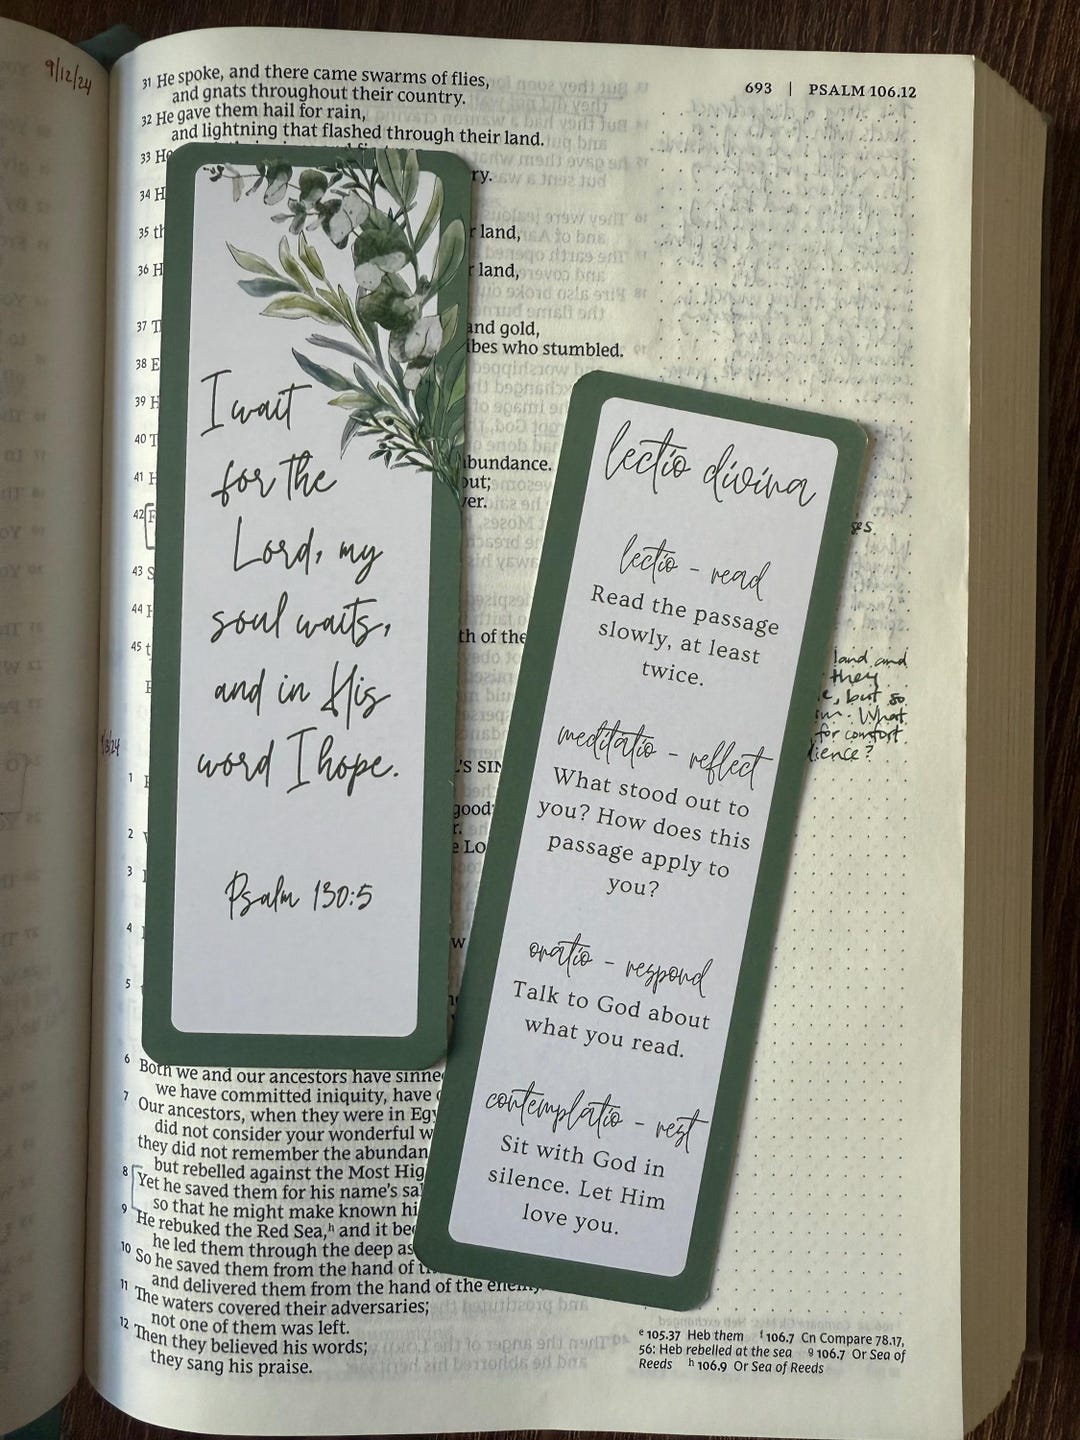 9/12/24
693 | PSALM 106.12
31 He spoke, and there came swarms of flies,
and gnats throughout their country.
32 He gave them hail for rain,
and lightning that flashed through their land.
33 He
ry.
34 H
35 th
land,
36 H
land,
37 T
and gold,
ibes who stumbled.
38 E
39 H
40 T
41 H
bundance.
out;
ver.
42 F
43 S
44 H
45 t
th of the
1
2
3
4
5
I wait
for the
Lord, my
soul waits,
and in His
word I hope.
Psalm 130:5
lectio divina
lectio - read
Read the passage
slowly, at least
twice.
meditatio - reflect
What stood out to
you? How does this
passage apply to
you?
oratio - respond
Talk to God about
what you read.
contemplatio - rest
Sit with God in
silence. Let Him
love you.
land and
they
, but so
What
for comfort
dience?
'S SIN
good
e Lo
6 Both we and our ancestors have sinne
we have committed iniquity, have
7 Our ancestors, when they were in Eg
did not consider your wonderful w
they did not remember the abundan
but rebelled against the Most Hig
8 Yet he saved them for his name's sa
so that he might make known hi
9 He rebuked the Red Sea,h and it bec
he led them through the deep as
10 So he saved them from the hand of
and delivered them from the hand of the enemy.
11 The waters covered their adversaries;
not one of them was left.
12 Then they believed his words;
they sang his praise.
e 105.37 Heb them f 106.7 Cn Compare 78.17,
56: Heb rebelled at the sea g 106.7 Or Sea of
Reeds h 106.9 Or Sea of Reeds